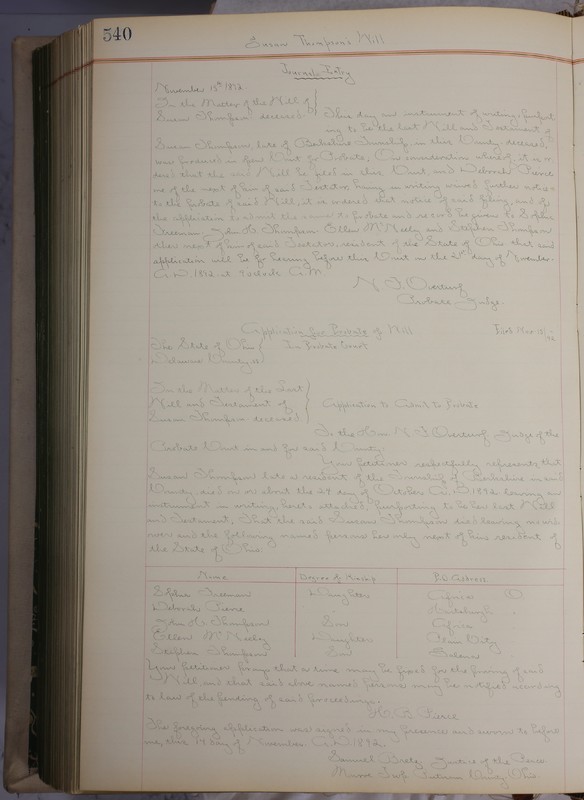 540
Susan Thompson's Will
Journal Entry
November 15th 1892
In the Matter of the Will of
Susan Thompson deceased } This day an instrument of writing, purport
ing to be the last Will and Testament of
Susan Thompson, late of Berkshire Township, in this County, deceased,
was produced in open Court for Probate; On consideration whereof, it is or
dered that the said Will be filed in this Court, and Deborah Pierce
one of the next of kin of said Testator, having in writing waived further notice
to the probate of said Will, it is ordered that notice of said filing, and of
the application to admit the same to probate and record be given to Sophia
Freeman, John H. Thompson, Ellen McNeely and Stephen Thompson
the next of kin of said Testator, resident of the State of Ohio, that said
application will be for hearing before this Court on the 21st day of November
A.D. 1892 at 9 o'clock A.M.
N. F. Overturf
Probate Judge.
Application for Probate of Will
Filed Nov.
The State of Ohio
Delaware County ss } In Probate Court
In the Matter of the Last
Will and Testament of
Susan Thompson deceased } Application to Admit to Probate
To the Hon N. F. Overturf Judge of the
Probate Court in and for said County.
Your Petitioner respectfully represents that
Susan Thompson late a resident of the Township of Berkshire in said
County, died on or about the 29 day of October A.D. 1892 leaving an
instrument in writing, hereto attached, purporting to be her last Will
and Testament; That the said Susan Thompson died leaving no wid
ower and the following named persons her only next of kin resident of
the State of Ohio.
Name Degree of Kinship P.O. Address
Sophia Freeman Daughter O
Deborah Pierce
John H. Thompson Son
Ellen McNeely Daughter
Stephen Thompson Son Galena
Your Petitioner prays that a time may be fixed for the proving of said
Will, and that said above named persons may be notified according
to law of the pending of said proceedings.
Pierce
The foregoing application was signed in my presence and sworn to before
me, this day of November A.D. 1892.
Samuel Justice of the Peace
Monroe Twp. Putnam County, Ohio.